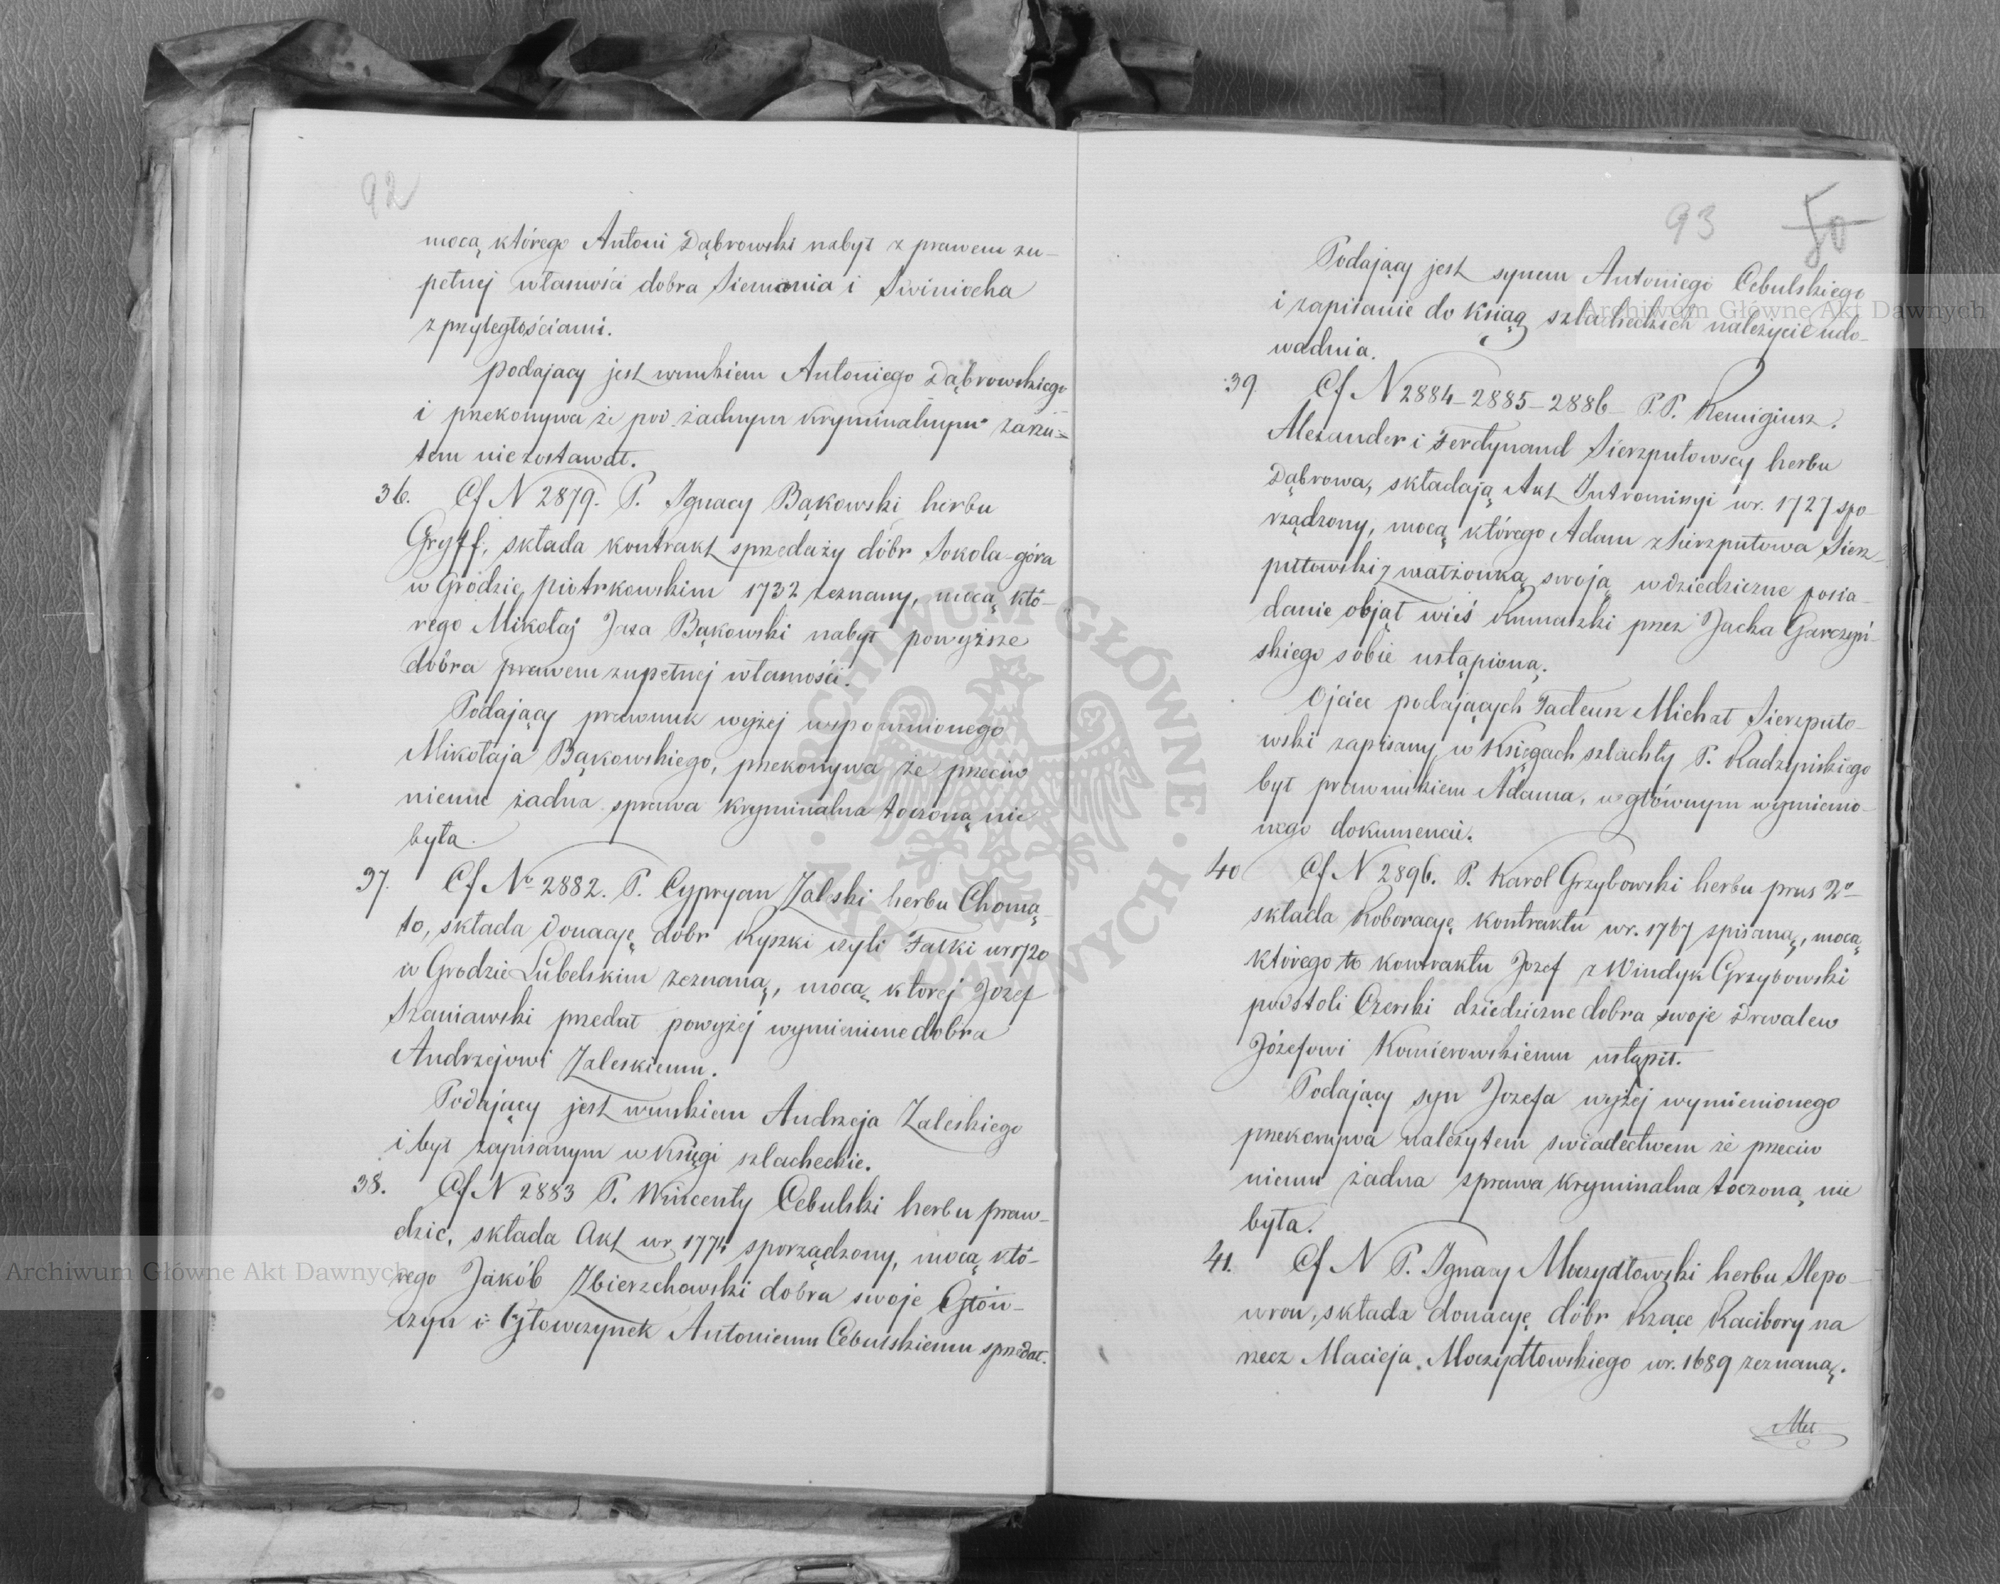 92
mocą którego Antoni Dąbrowski nabył z prawem zu-
pełnej własności dobra Siemonia i Swiniocha
z przyległościami.
podający jest wnukiem Antoniego Dąbrowskiego
i przekonywa że pod żadnym kryminalnym zarzu-
tem nie zostawał.
36. Cf N 2879. P. Ignacy Bąkowski herbu
Gryff, składa kontrakt sprzedaży dóbr Sokola-góra
w Grodzie piotrkowskim 1732 zeznany, mocą któ-
rego Mikołaj Jaxa Bąkowski nabył powyższe
dobra prawem zupełnej własności.
Podający prawnuk wyżej wspomnionego
Mikołaja Bąkowskiego, przekonywa że przeciw
niemu żadna sprawa kryminalna toczoną nie
była.
37. Cf No 2882. P. Cypryan Zalski herbu Chomą-
to, składa Donacyę dobr Kyszki czyli Fatki wr 1720
w Grodzie Lubelskim zeznaną, mocą ktorej Jozef
Szaniawski przedał powyżej wymienione dobra
Andrzejowi Zaleskiemu.
Podający jest wnukiem Andrzeja Zaleskiego
i był zapisanym w Księgi szlacheckie.
38. Cf N 2883 P. Wincenty Cebulski herbu praw-
dzic, składa Akt wr 1774 sporządzony, mocą któ-
rego Jakób Zbierzchowski dobra swoje Głów-
czyn i Głowczynek Antoniemu Cebulskiemu sprzedał.
93 50
Podający jest synem Antoniego Cebulskiego
i zapisanie do Ksiąg szlacheckich należycie udo-
wadnia.
39 Cf N 2884-2885-2886- P.P. Remigiusz.
Alexander i Ferdynand Sierzputowscy herbu
Dąbrowa, składają Akt Intromisyi wr. 1727 spo-
rządzony, mocą którego Adam z Sierzputowa Sierz-
putowski z małżonką swoją w dziedziczne posia-
danie objął wieś Rumaszki przez Jacka Garczyń-
skiego sobie ustąpioną.
Ojciec podających Tadeusz Michał Sierzputo-
wski zapisany w Księgach szlachty P. Radzyńskiego
był prawnukiem Adama, w głównym wymienio-
nego dokumencie.
40 Cf N 2896. P. Karol Grzybowski herbu prus 2o
składa Roboracyę kontraktu wr. 1767 spisaną, mocą
którego to kontraktu Jozef z Windyk Grzybowski
podstoli Czerski dziedziczne dobra swoje Drwalew
Józefowi Komierowskiemu ustąpił.
Podający syn Jozefa wyżej wymienionego
przekonywa należytem swiadectwem że przeciw
niemu żadna sprawa kryminalna toczoną nie
była.
41. Cf N P. Ignacy Moczydłowski herbu Slepo-
wron, składa donacyę dóbr Rzące Racibory na
rzecz Macieja Moczydłowskiego wr. 1689 zeznaną.
Archiwum Główne Akt Dawnych
Archiwum Główne Akt Dawnych
ARCHIWUM GŁÓWNE AKT DAWNYCH